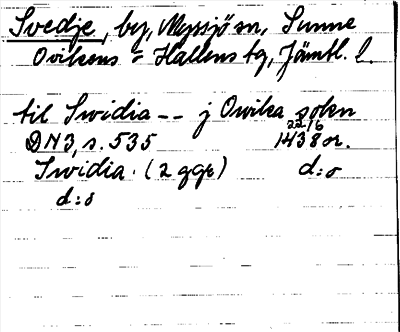 Svedje, by, Myssjö sn, Sunne
Ovikens o Hallens tg, Jämtl. l.
til Swidia -- j Owika sokn
22/6
DN3, s. 535 1438 or.
Swidia. (2 ggr) d:o
d:o